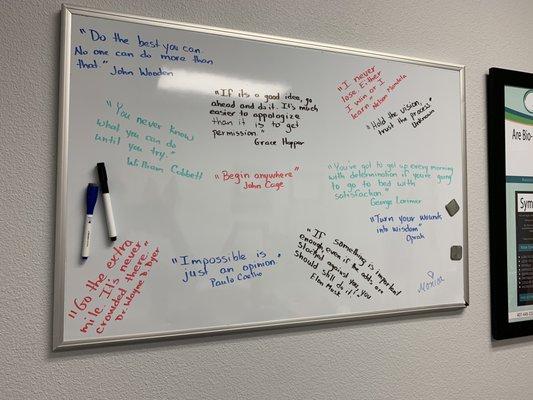 "Do the best you can.
No one can do more than
that." John Wooden
"If its a good idea, go
ahead and do it. It's much
easier to appologize
than it is to get
permission."
Grace Hopper
"I never
lose. Either
I win or I
learn" Nelson Mandela
"Hold the vision,
trust the process"
Unknown
"You never know
what you can do
until you try."
William Cobbett
"Begin anywhere"
John Cage
"You've got to get up every morning
with determination if you're going
to go to bed with
satisfaction."
George Lorimer
"Turn your wounds
into wisdom"
Oprah
"Go the extra
mile. It's never
crowded there."
Dr. Wayne D. Dyer
"Impossible is
just an opinion."
Paulo Coelho
"If something is important
enough, even if the odds are
stacked against you, you
should still do it."
Elon Musk
Are Bio-
Sym